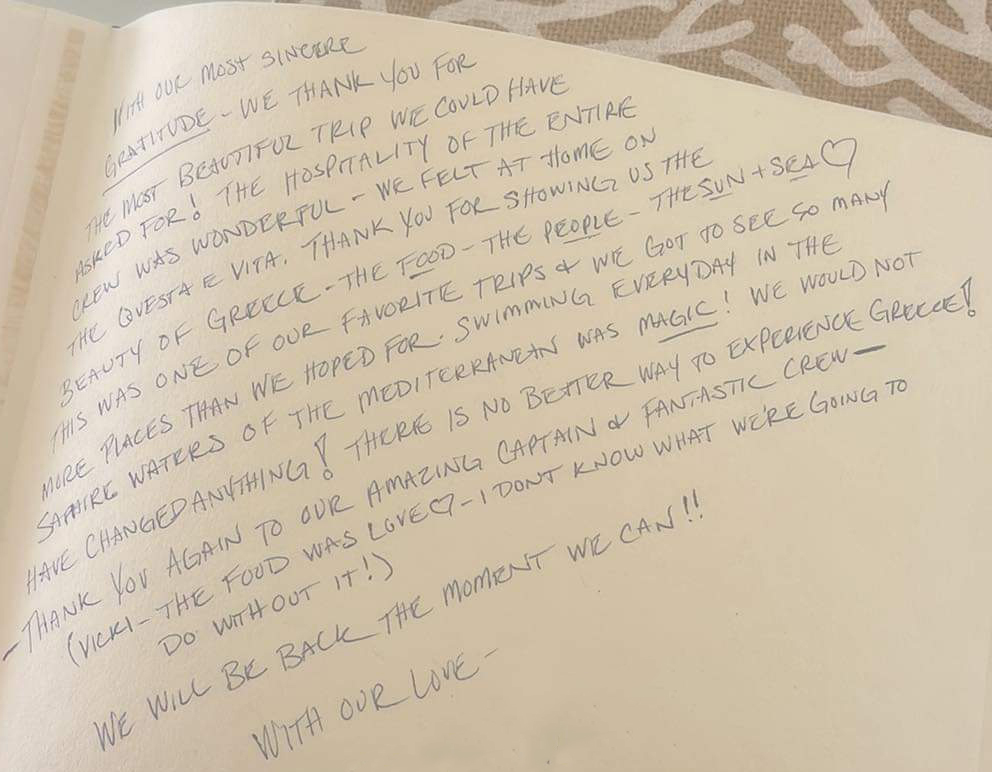 WITH OUR MOST SINCERE
GRATITUDE - WE THANK YOU FOR
THE MOST BEAUTIFUL TRIP WE COULD HAVE
ASKED FOR! THE HOSPITALITY OF THE ENTIRE
CREW WAS WONDERFUL - WE FELT AT HOME ON
THE QUESTA E VITA. THANK YOU FOR SHOWING US THE
BEAUTY OF GREECE - THE FOOD - THE PEOPLE - THE SUN + SEA ♡
THIS WAS ONE OF OUR FAVORITE TRIPS & WE GOT TO SEE SO MANY
MORE PLACES THAN WE HOPED FOR. SWIMMING EVERYDAY IN THE
SAPHIRE WATERS OF THE MEDITERRANEAN WAS MAGIC! WE WOULD NOT
HAVE CHANGED ANYTHING! THERE IS NO BETTER WAY TO EXPERIENCE GREECE!
- THANK YOU AGAIN TO OUR AMAZING CAPTAIN & FANTASTIC CREW -
(VICKI - THE FOOD WAS LOVE ♡ - I DONT KNOW WHAT WE'RE GOING TO
DO WITHOUT IT!)
WE WILL BE BACK THE MOMENT WE CAN!!
WITH OUR LOVE -